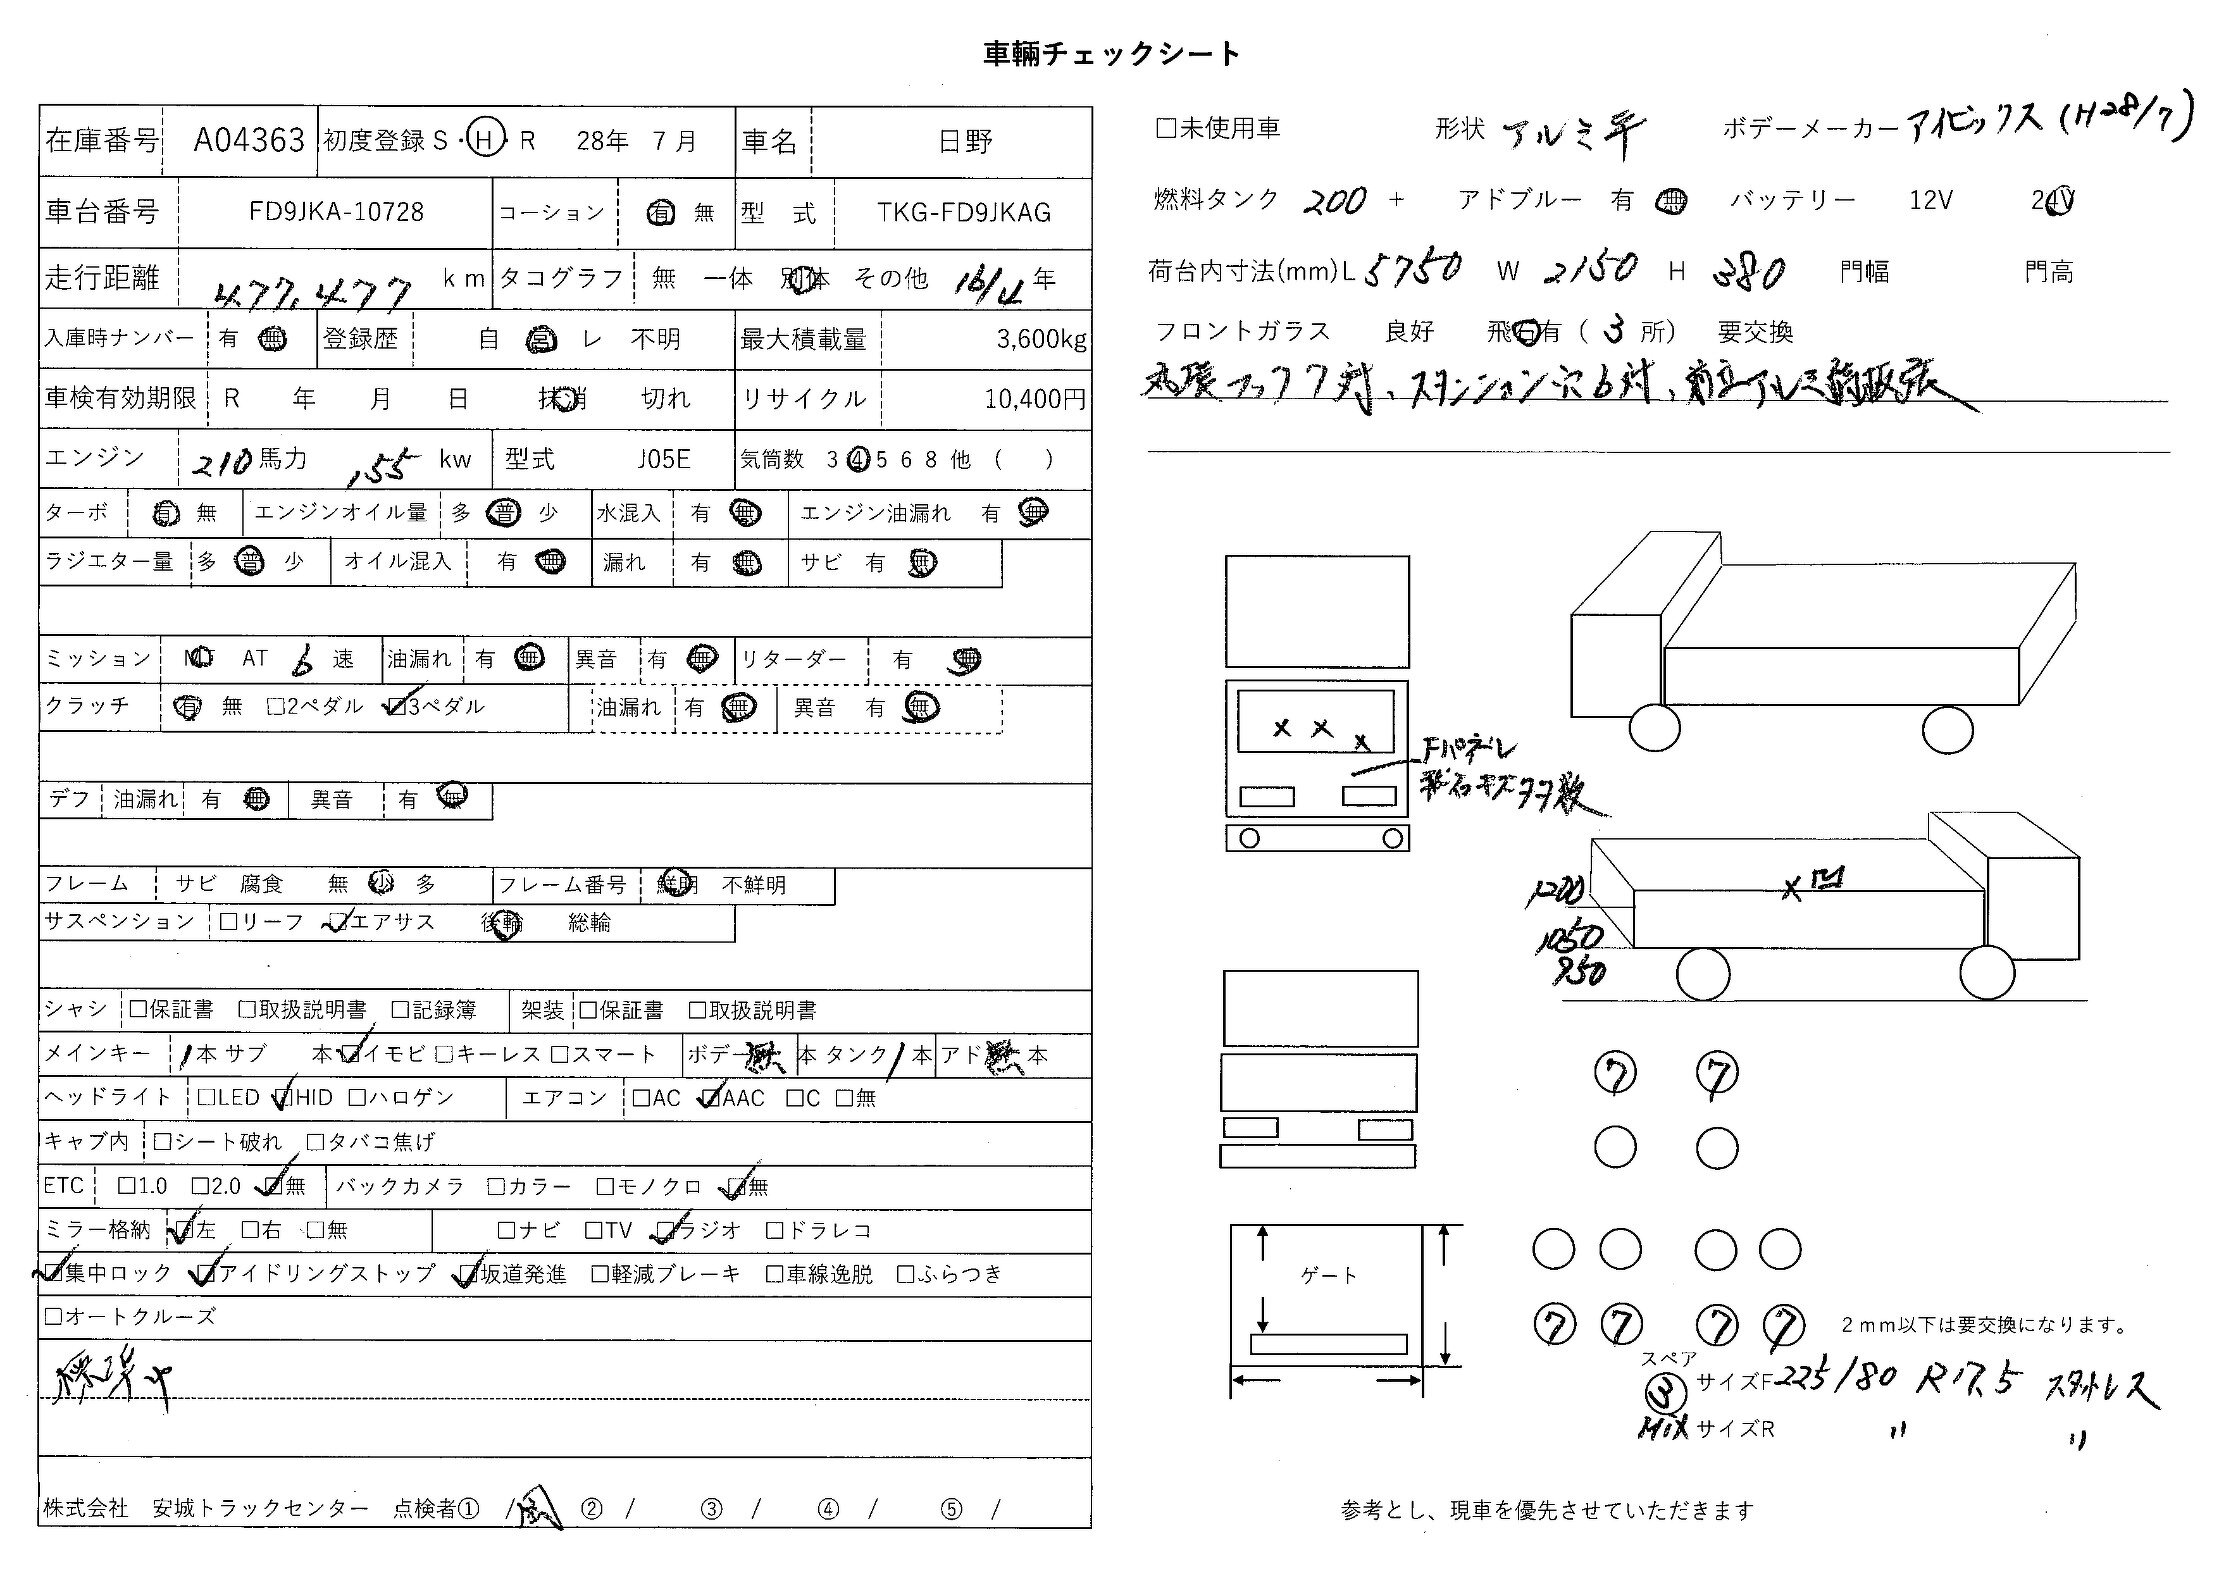 車輛チェックシート
在庫番号 A04363 初度登録 S・H・R 28年 7月 車名 日野
車台番号 FD9JKA-10728 コーション 有 無 型 式 TKG-FD9JKAG
走行距離 477,477 km タコグラフ 無 一体 別体 その他 16/4 年
入庫時ナンバー 有 無 登録歴 自 営 レ 不明 最大積載量 3,600kg
車検有効期限 R 年 月 日 抹消 切れ リサイクル 10,400円
エンジン 210 馬力 155 kw 型式 J05E 気筒数 3 4 5 6 8 他 ( )
ターボ 有 無 エンジンオイル量 多 普 少 水混入 有 無 エンジン油漏れ 有 無
ラジエター量 多 普 少 オイル混入 有 無 漏れ 有 無 サビ 有 無
ミッション MT AT 6 速 油漏れ 有 無 異音 有 無 リターダー 有 無
クラッチ 有 無 □2ペダル ☑3ペダル 油漏れ 有 無 異音 有 無
デフ 油漏れ 有 無 異音 有 無
フレーム サビ 腐食 無 少 多 フレーム番号 鮮明 不鮮明
サスペンション □リーフ ☑エアサス 後輪 総輪
シャシ □保証書 □取扱説明書 □記録簿 架装 □保証書 □取扱説明書
メインキー 1本 サブ 本 ☑イモビ □キーレス □スマート ボデー 無 本 タンク 1 本 アド 無 本
ヘッドライト □LED ☑HID □ハロゲン エアコン □AC ☑AAC □C □無
キャブ内 □シート破れ □タバコ焦げ
ETC □1.0 □2.0 ☑無 バックカメラ □カラー □モノクロ ☑無
ミラー格納 ☑左 □右 □無 □ナビ □TV ☑ラジオ □ドラレコ
☑集中ロック ☑アイドリングストップ ☑坂道発進 □軽減ブレーキ □車線逸脱 □ふらつき
□オートクルーズ
標準
株式会社 安城トラックセンター 点検者① / ② / ③ / ④ / ⑤ /
□未使用車 形状 アルミ平 ボデーメーカー アイビックス (H28/7)
燃料タンク 200 + アドブルー 有 無 バッテリー 12V 24V
荷台内寸法(mm) L 5750 W 2150 H 380 門幅 門高
フロントガラス 良好 飛石有 ( 3 所) 要交換
丸環フック7対、スタンション穴6対、前立アルミ縞板張
× × ×
Fパネル
飛石キズ多数
1200
× 凹
1050
950
7 7
ゲート
7 7 7 7 2mm以下は要交換になります。
スペア
3 サイズF 225/80 R17.5 スタットレス
MIX サイズR 〃 〃
参考とし、現車を優先させていただきます